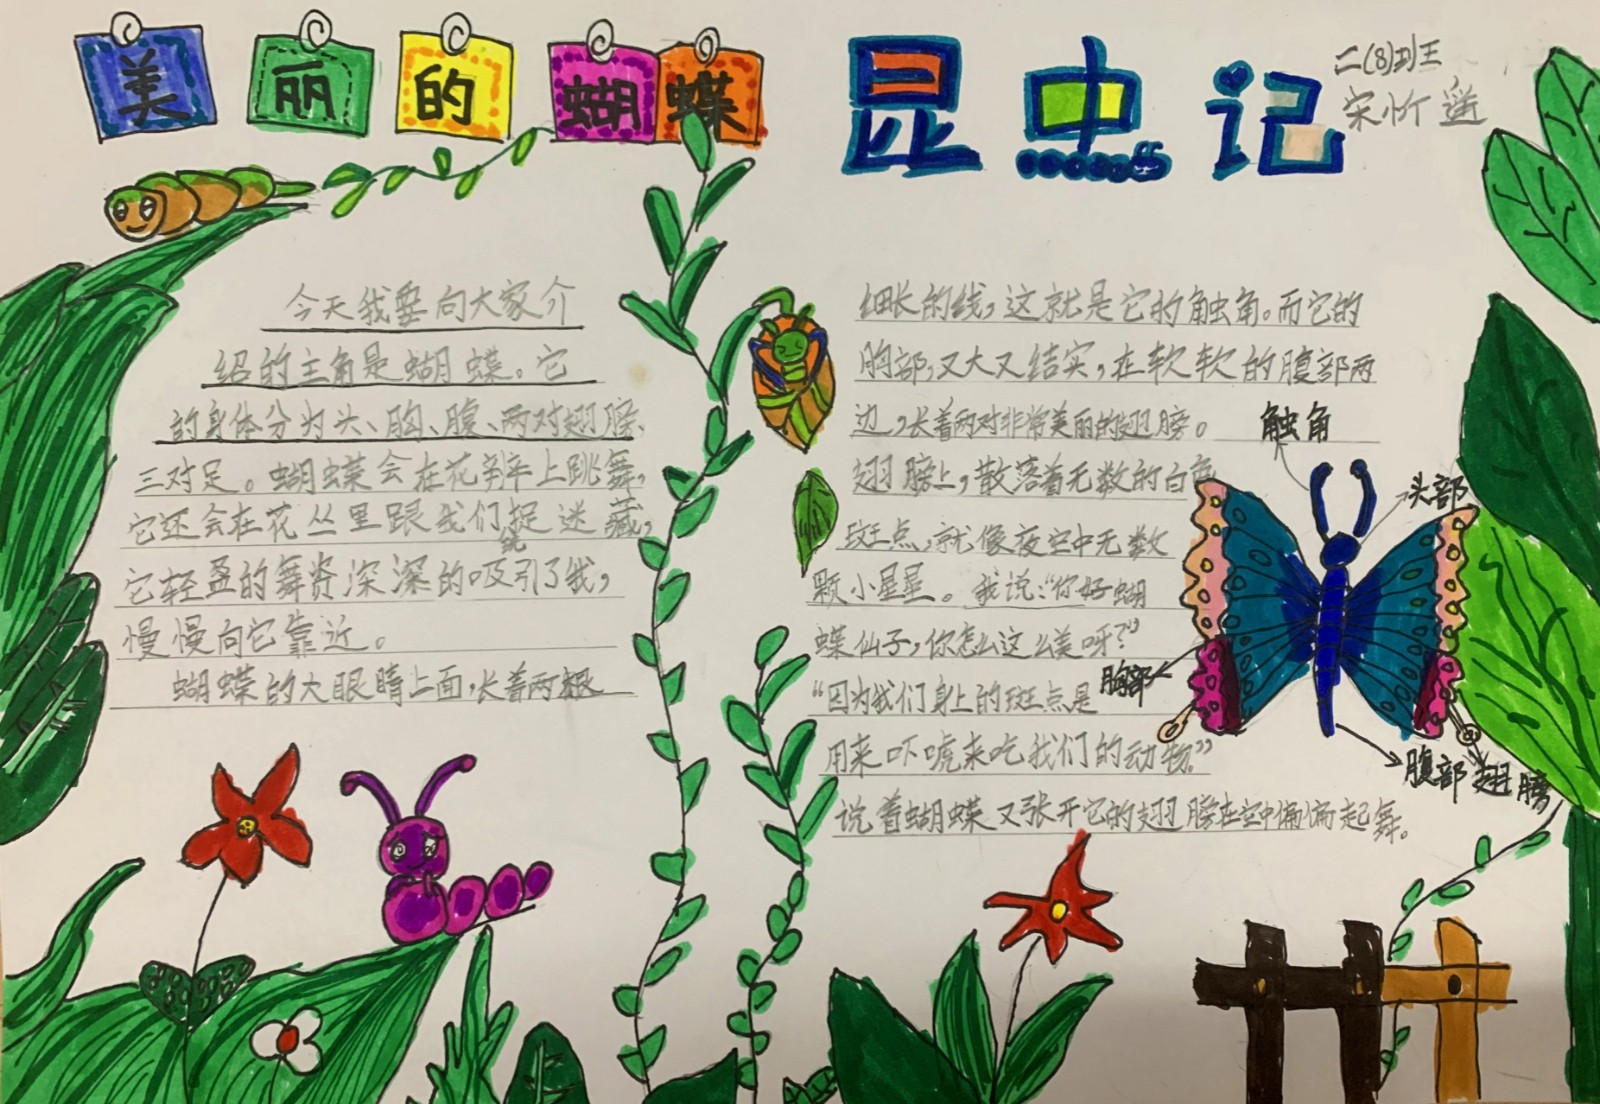 美丽的蝴蝶
昆虫记
二(8)班王
宋忻遥
今天我要向大家介
绍的主角是蝴蝶。它
的身体分为头、胸、腹、两对翅膀、
三对足。蝴蝶会在花瓣上跳舞,
它还会在花丛里跟我们捉迷藏,
它轻盈的舞姿深深的吸引了我,
慢慢向它靠近。
蝴蝶的大眼睛上面,长着两根
细长的线,这就是它的触角。而它的
胸部,又大又结实,在软软的腹部两
边,长着两对非常美丽的翅膀。
翅膀上,散落着无数的白色
斑点,就像夜空中无数
颗小星星。我说:“你好蝴
蝶仙子,你怎么这么美呀?”
“因为我们身上的斑点是
用来吓唬来吃我们的动物。”
说着蝴蝶又张开它的翅膀在空中偏偏起舞。
触角
头部
胸部
腹部
翅膀